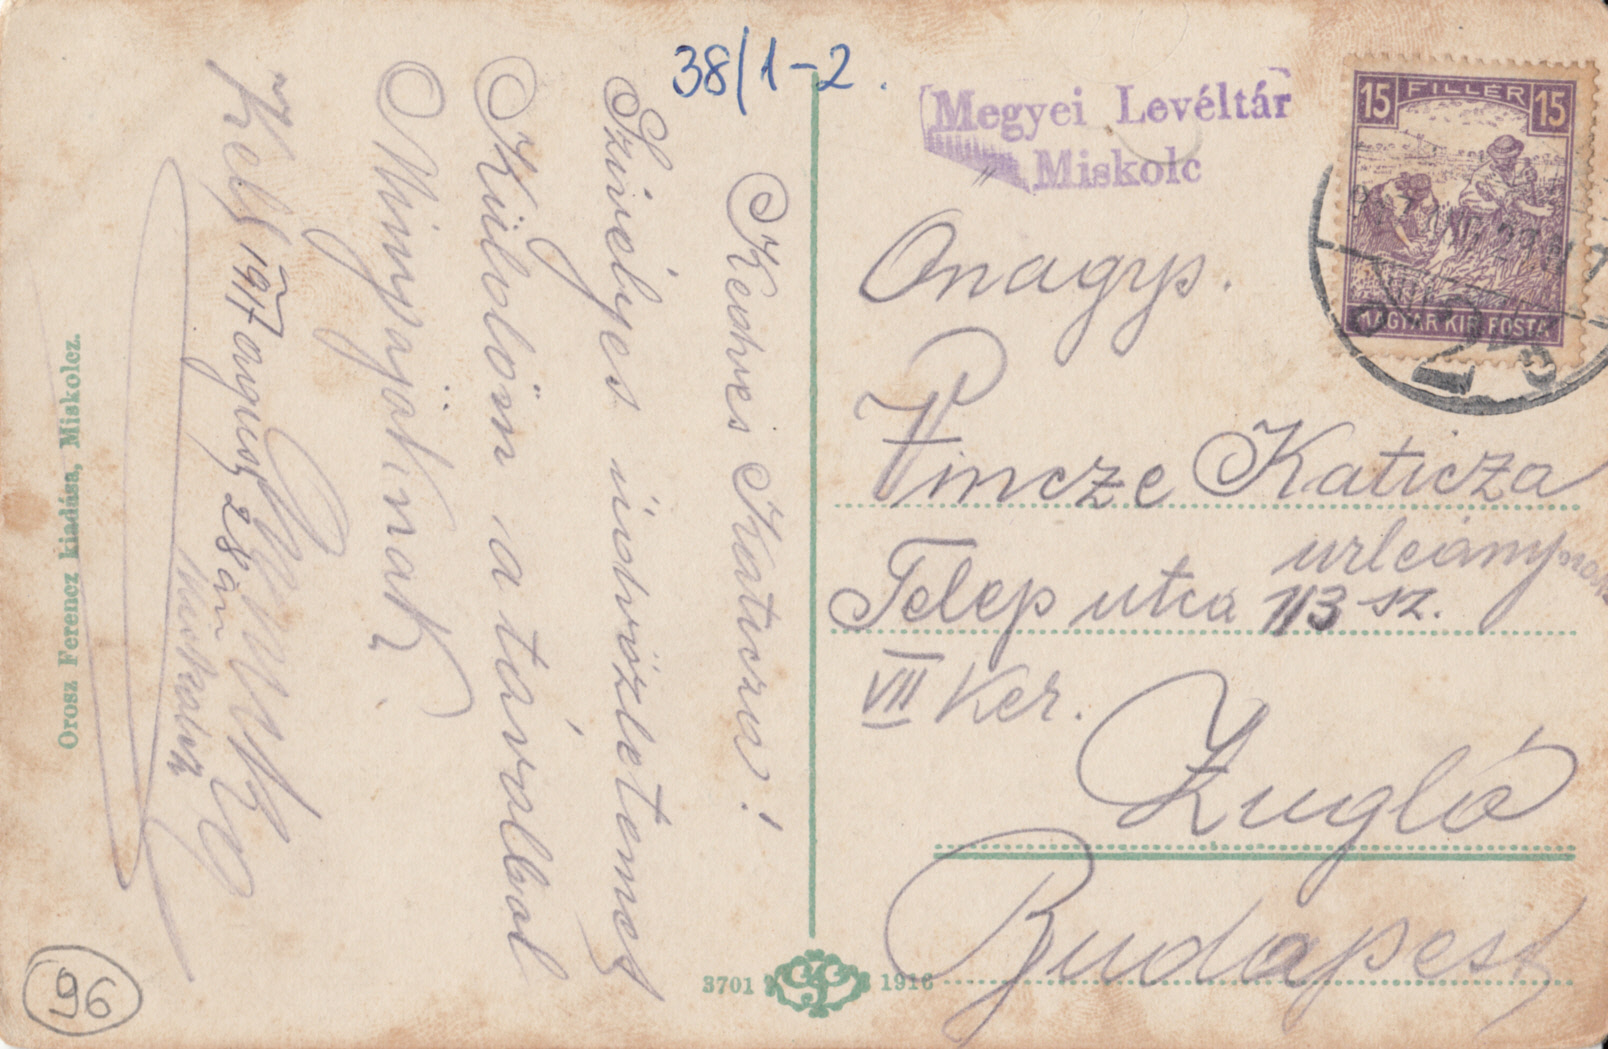 38/1-2.
Megyei Levéltár
Miskolc
15 FILLÉR 15
MAGYAR KIR. POSTA
Kedves Katicza!
Szivélyes üdvözletemet
Küldöm a távolbol
Minyájoknak
Kelt 1917 august 28 án
Onagys.
Vincze Katicza
urleány
Telep utca 113 sz.
VII Ker.
Zugló
Budapest
Orosz Ferencz kiadása, Miskolcz.
3701
1916
96